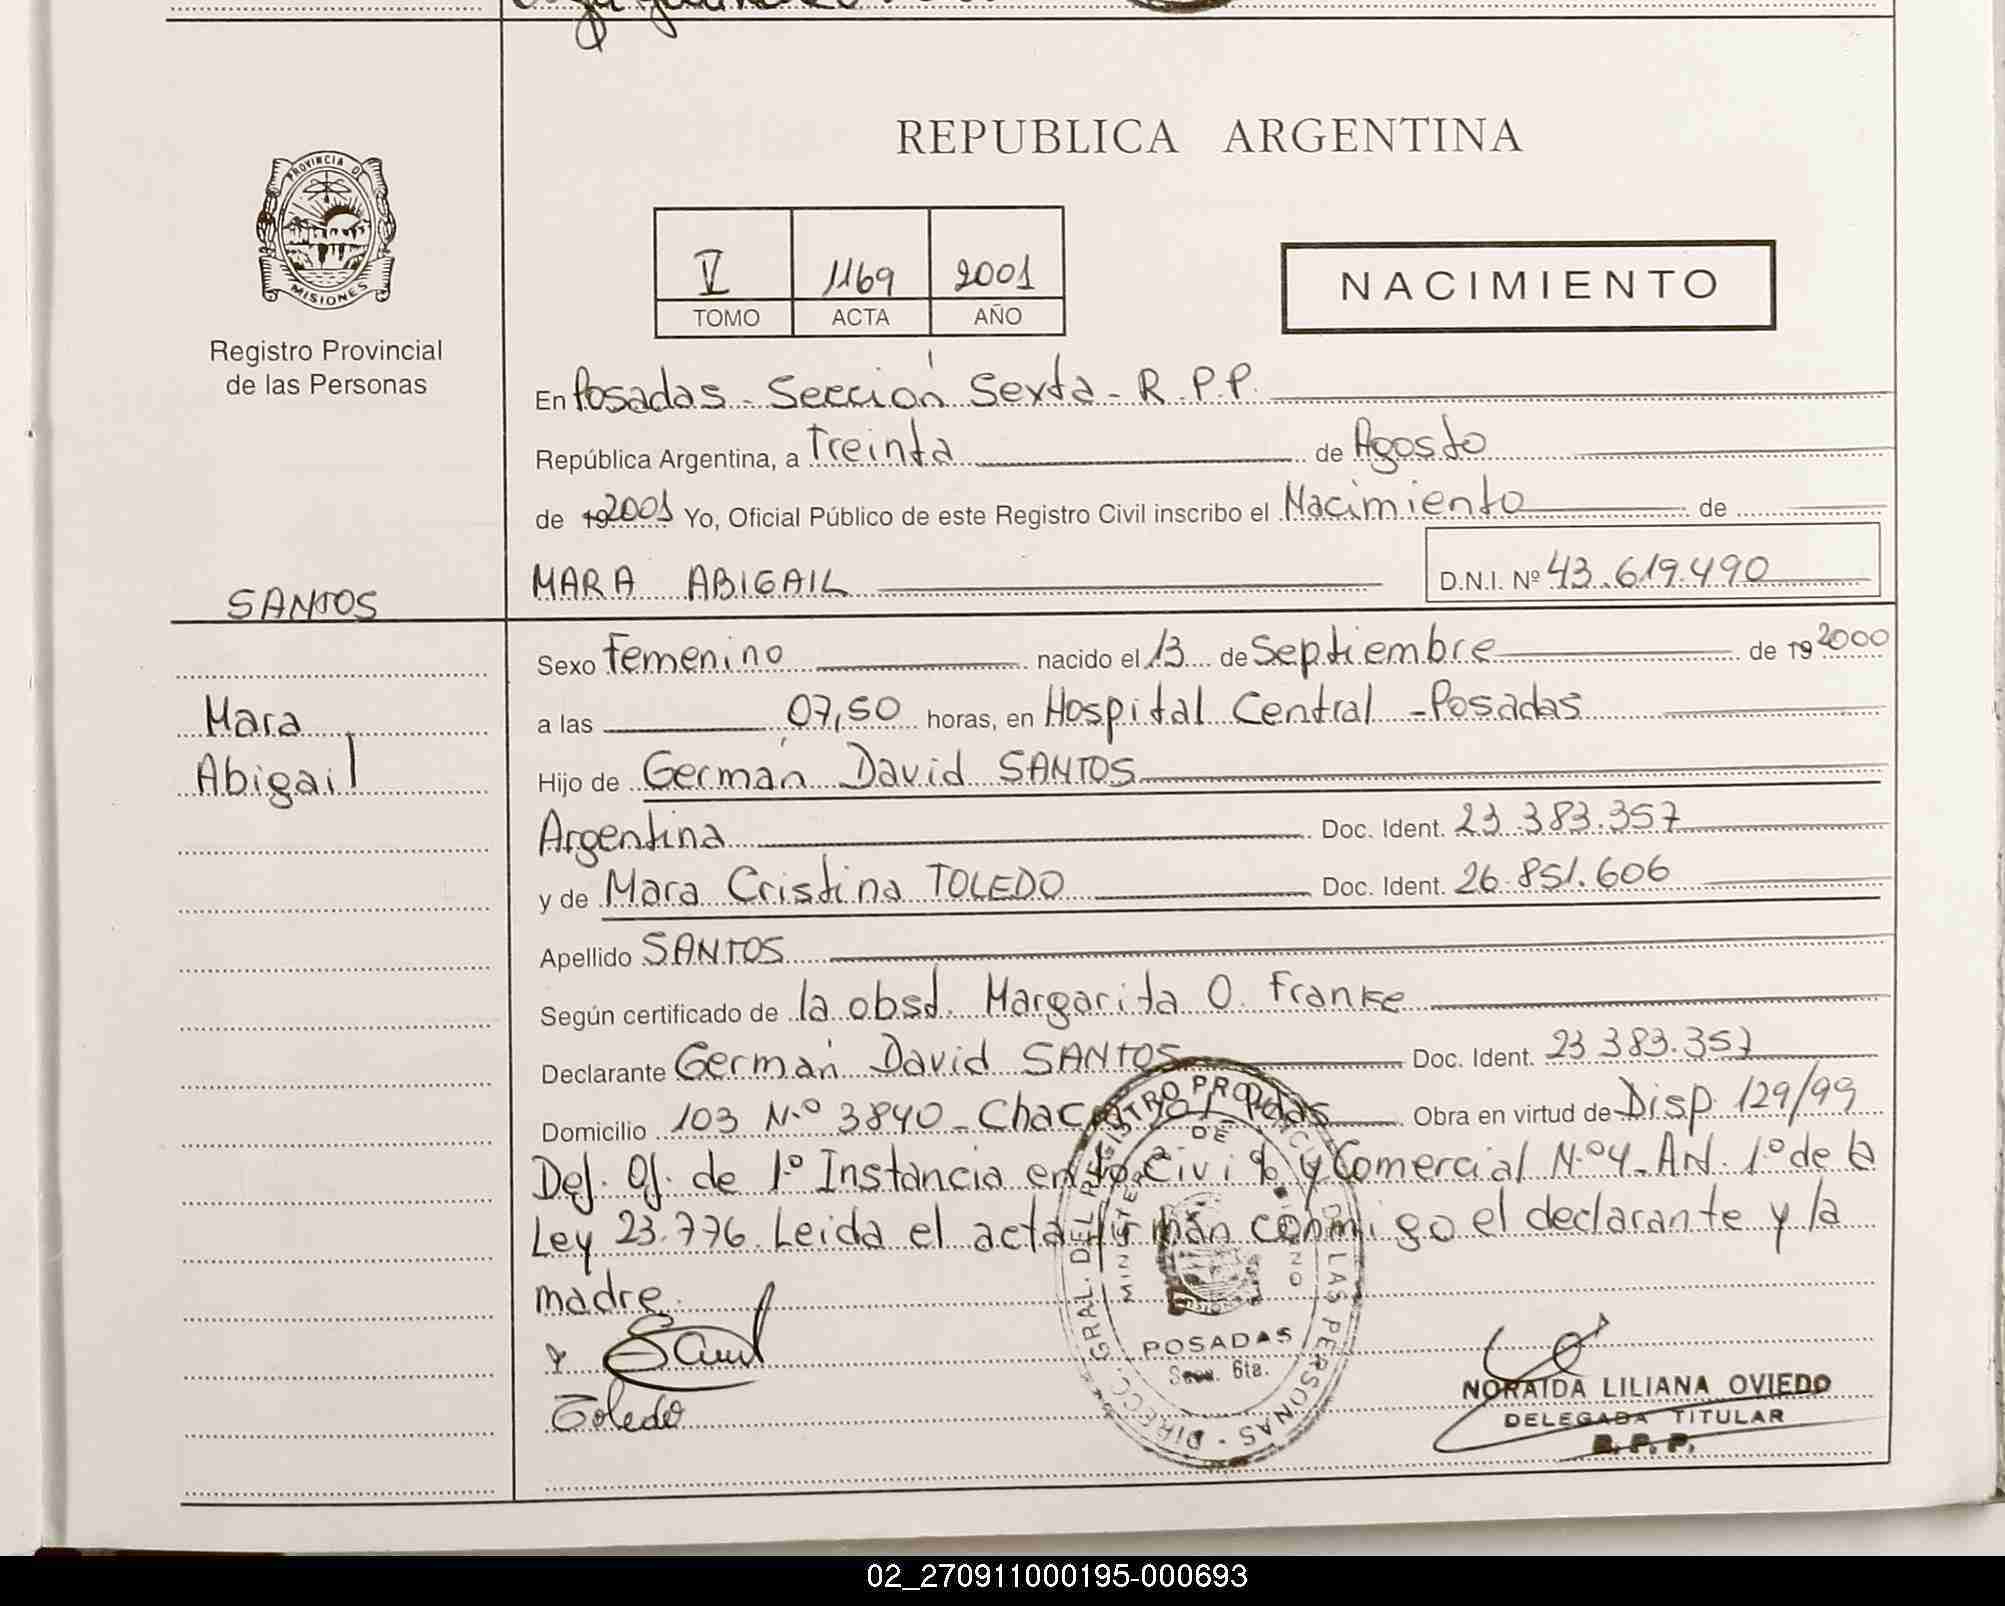 REPUBLICA ARGENTINA
PROVINCIA DE
MISIONES
Registro Provincial
de las Personas
V 1169 2001
TOMO ACTA AÑO
NACIMIENTO
En Posadas - Sección Sexta - R.P.P.
República Argentina, a Treinta de Agosto
de 19 2001 Yo, Oficial Público de este Registro Civil inscribo el Nacimiento de
MARA ABIGAIL D.N.I. Nº 43.619.490
SANTOS
Mara
Abigail
Sexo Femenino nacido el 13 de Septiembre de 19 2000
a las 07,50 horas, en Hospital Central - Posadas
Hijo de Germán David SANTOS
Argentina Doc. Ident. 23.383.357
y de Mara Cristina TOLEDO Doc. Ident. 26.851.606
Apellido SANTOS
Según certificado de la obst. Margarita O. Franke
Declarante Germán David SANTOS Doc. Ident. 23.383.357
Domicilio 103 N.º 3840 - Obra en virtud de Disp. 129/99
Def. Of. de 1.º Instancia en lo Civil y Comercial N.º 4 - Art. 1.º de la
Ley 23.776. Leida el acta firman conmigo el declarante y la
madre.
Toledo
DIRECC. GRAL. DEL REGISTRO PROVINCIAL DE LAS PERSONAS
MINISTERIO DE GOBIERNO
POSADAS
Secc. 6ta.
NORAIDA LILIANA OVIEDO
DELEGADA TITULAR
R. P. P.
02_270911000195-000693